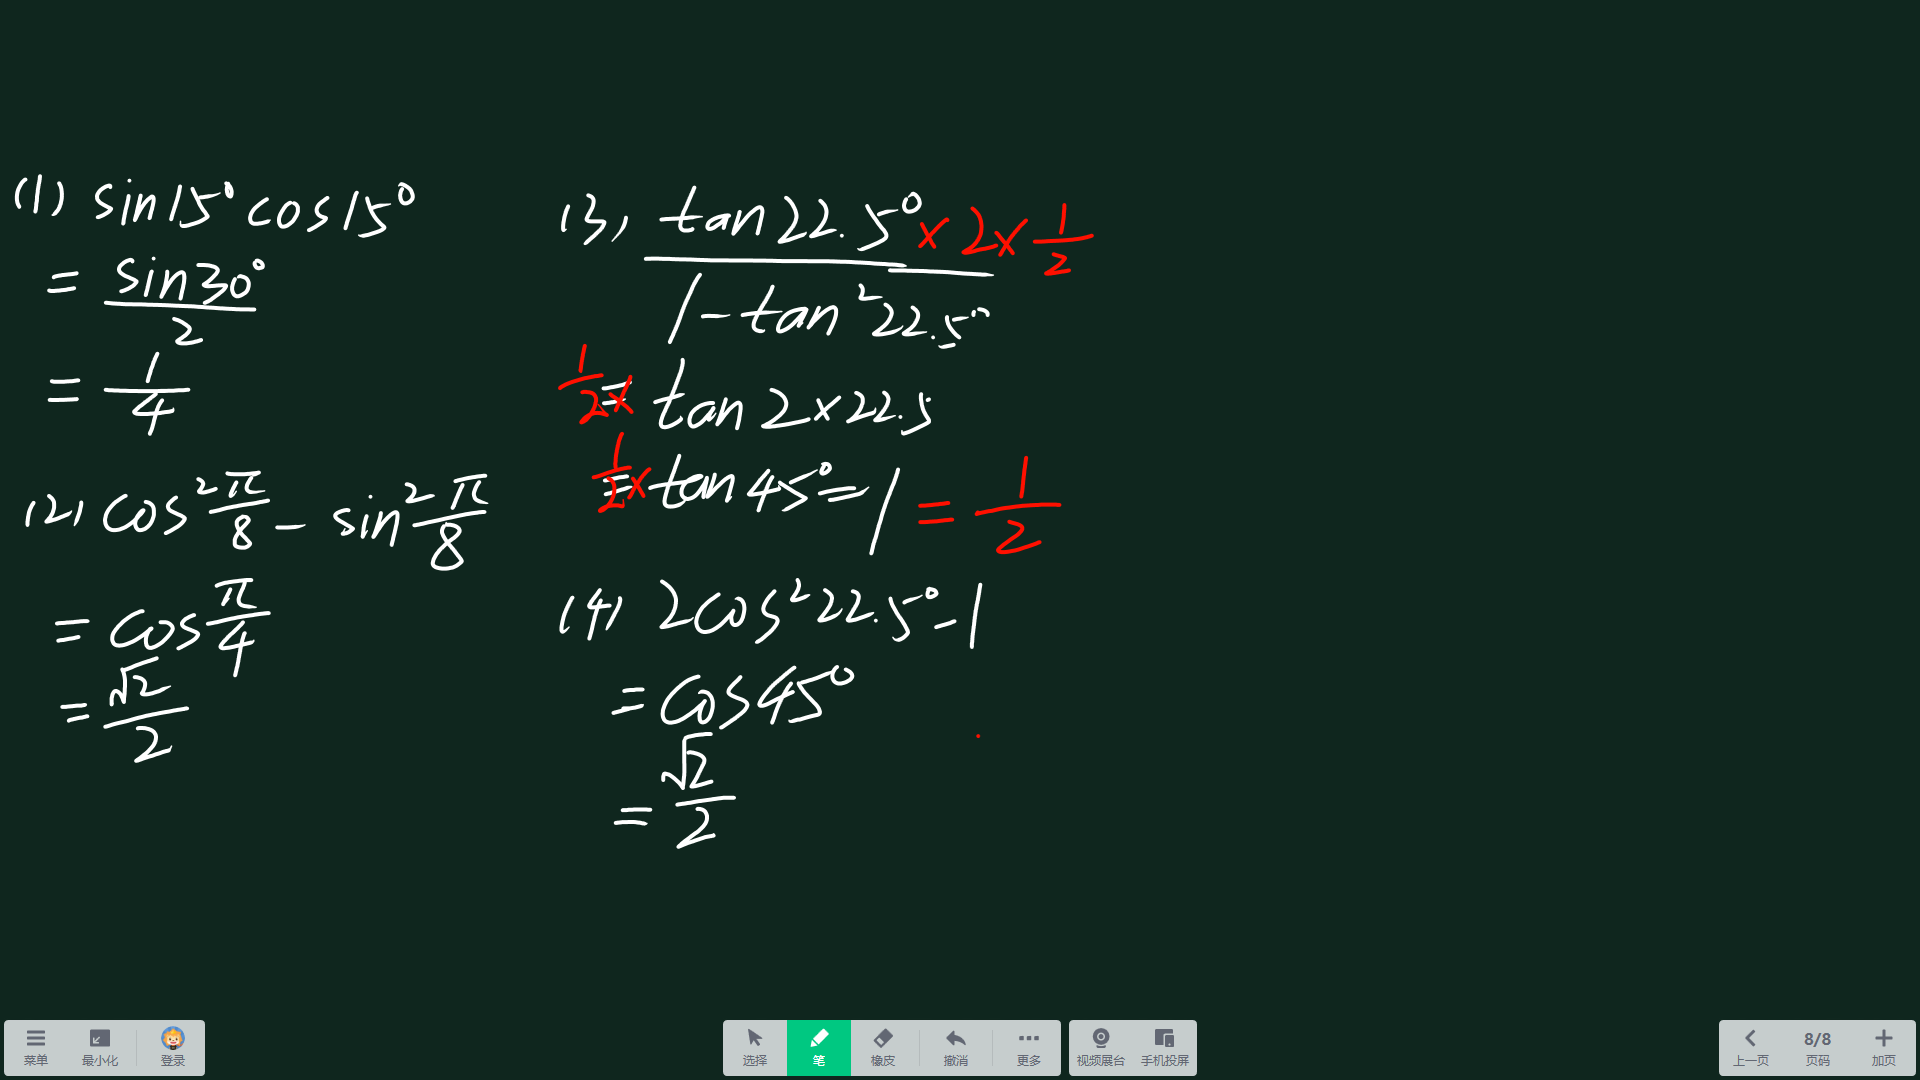 (1) sin15°cos15°
= sin30°/2
= 1/4
(2) cos²π/8 - sin²π/8
= cosπ/4
= √2/2
(3) tan22.5° × 2 × 1/2
1 - tan²22.5°
1/2 × = tan2×22.5
1/2 × = tan45° = 1 = 1/2
(4) 2cos²22.5° - 1
= cos45°
= √2/2
菜单 最小化 登录 选择 笔 橡皮 撤消 更多 视频展台 手机投屏 上一页 8/8 页码 加页